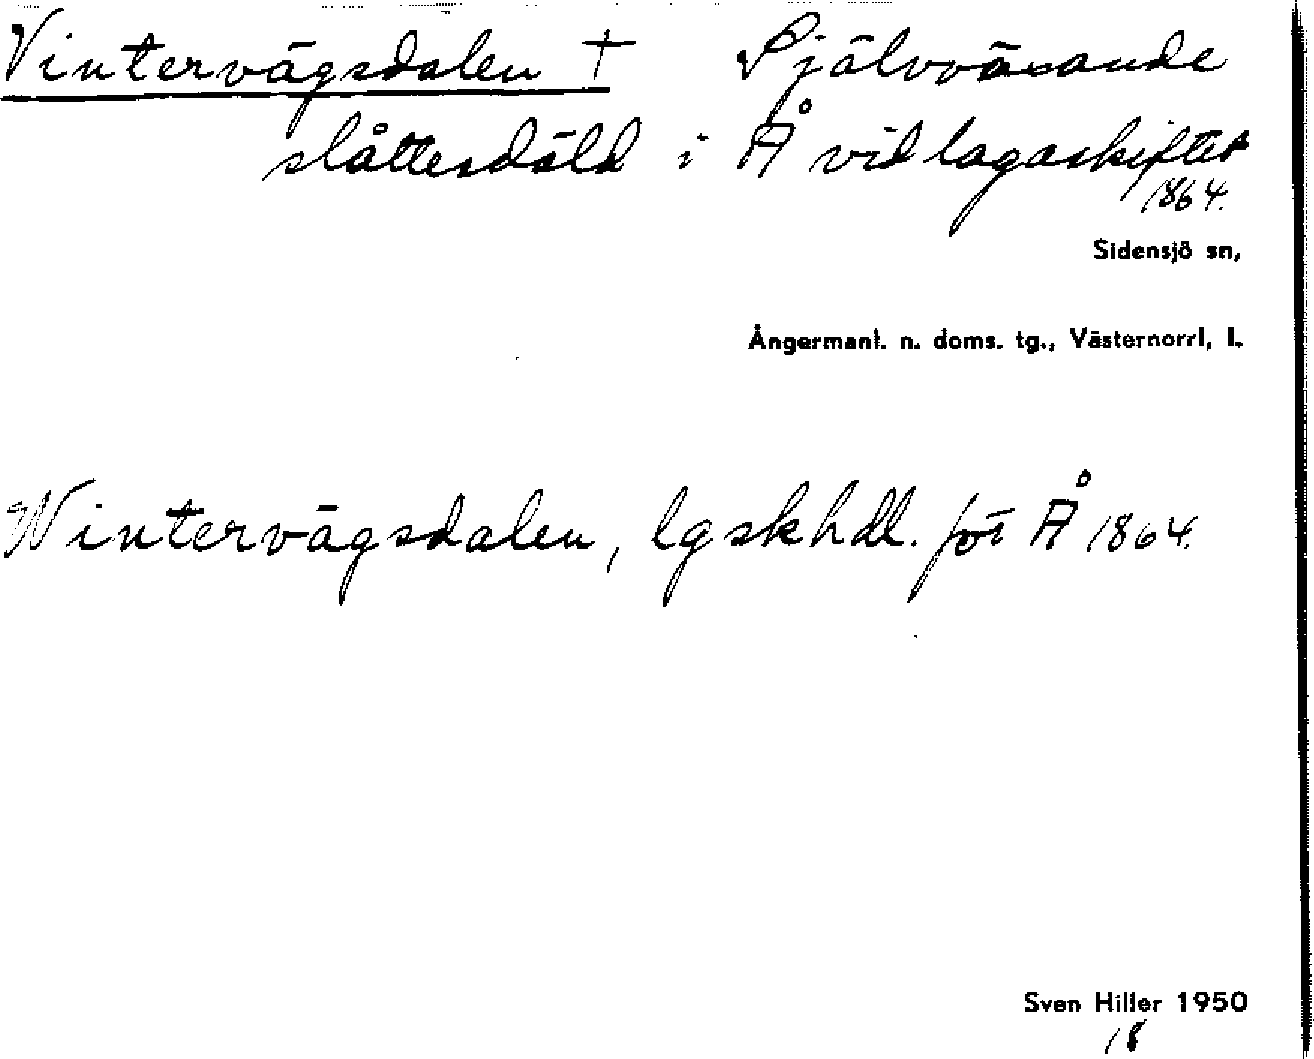 Vintervägsdalen † Självväxande
slåttesdäld i Å vid lagaskiftet
1864.
Sidensjö sn,
Ångermanl. n. doms. tg., Västernorrl. l.
Wintervägsdalen, lgskhdl. för Å 1864.
Sven Hiller 1950
18